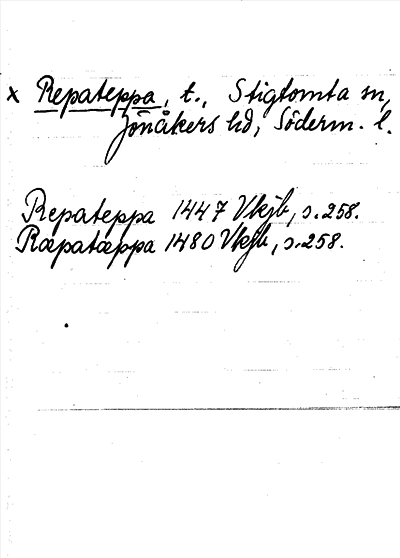 x Repateppa, t., Stigtomta sn,
Jönåkers hd, Söderm. l.
Repateppa 1447 Vkjb, s. 258.
Ræpatæppa 1480 Vkjb, s. 258.